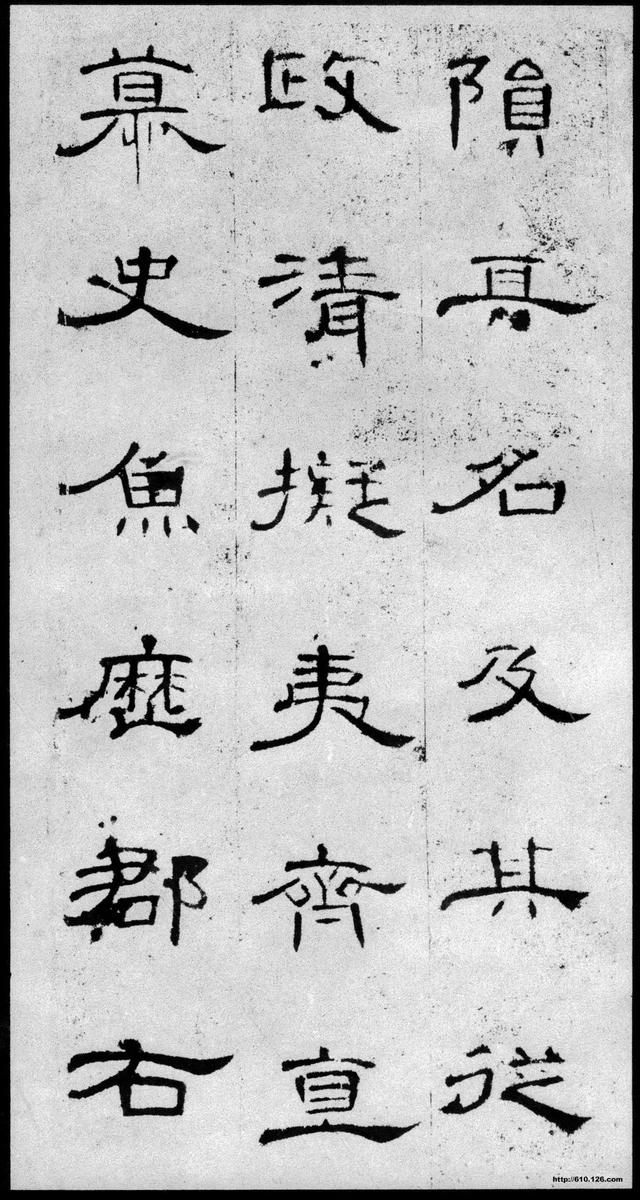 隕其名及其從
政清擬夷齊直
慕史魚歷郡右
http://610.126.com